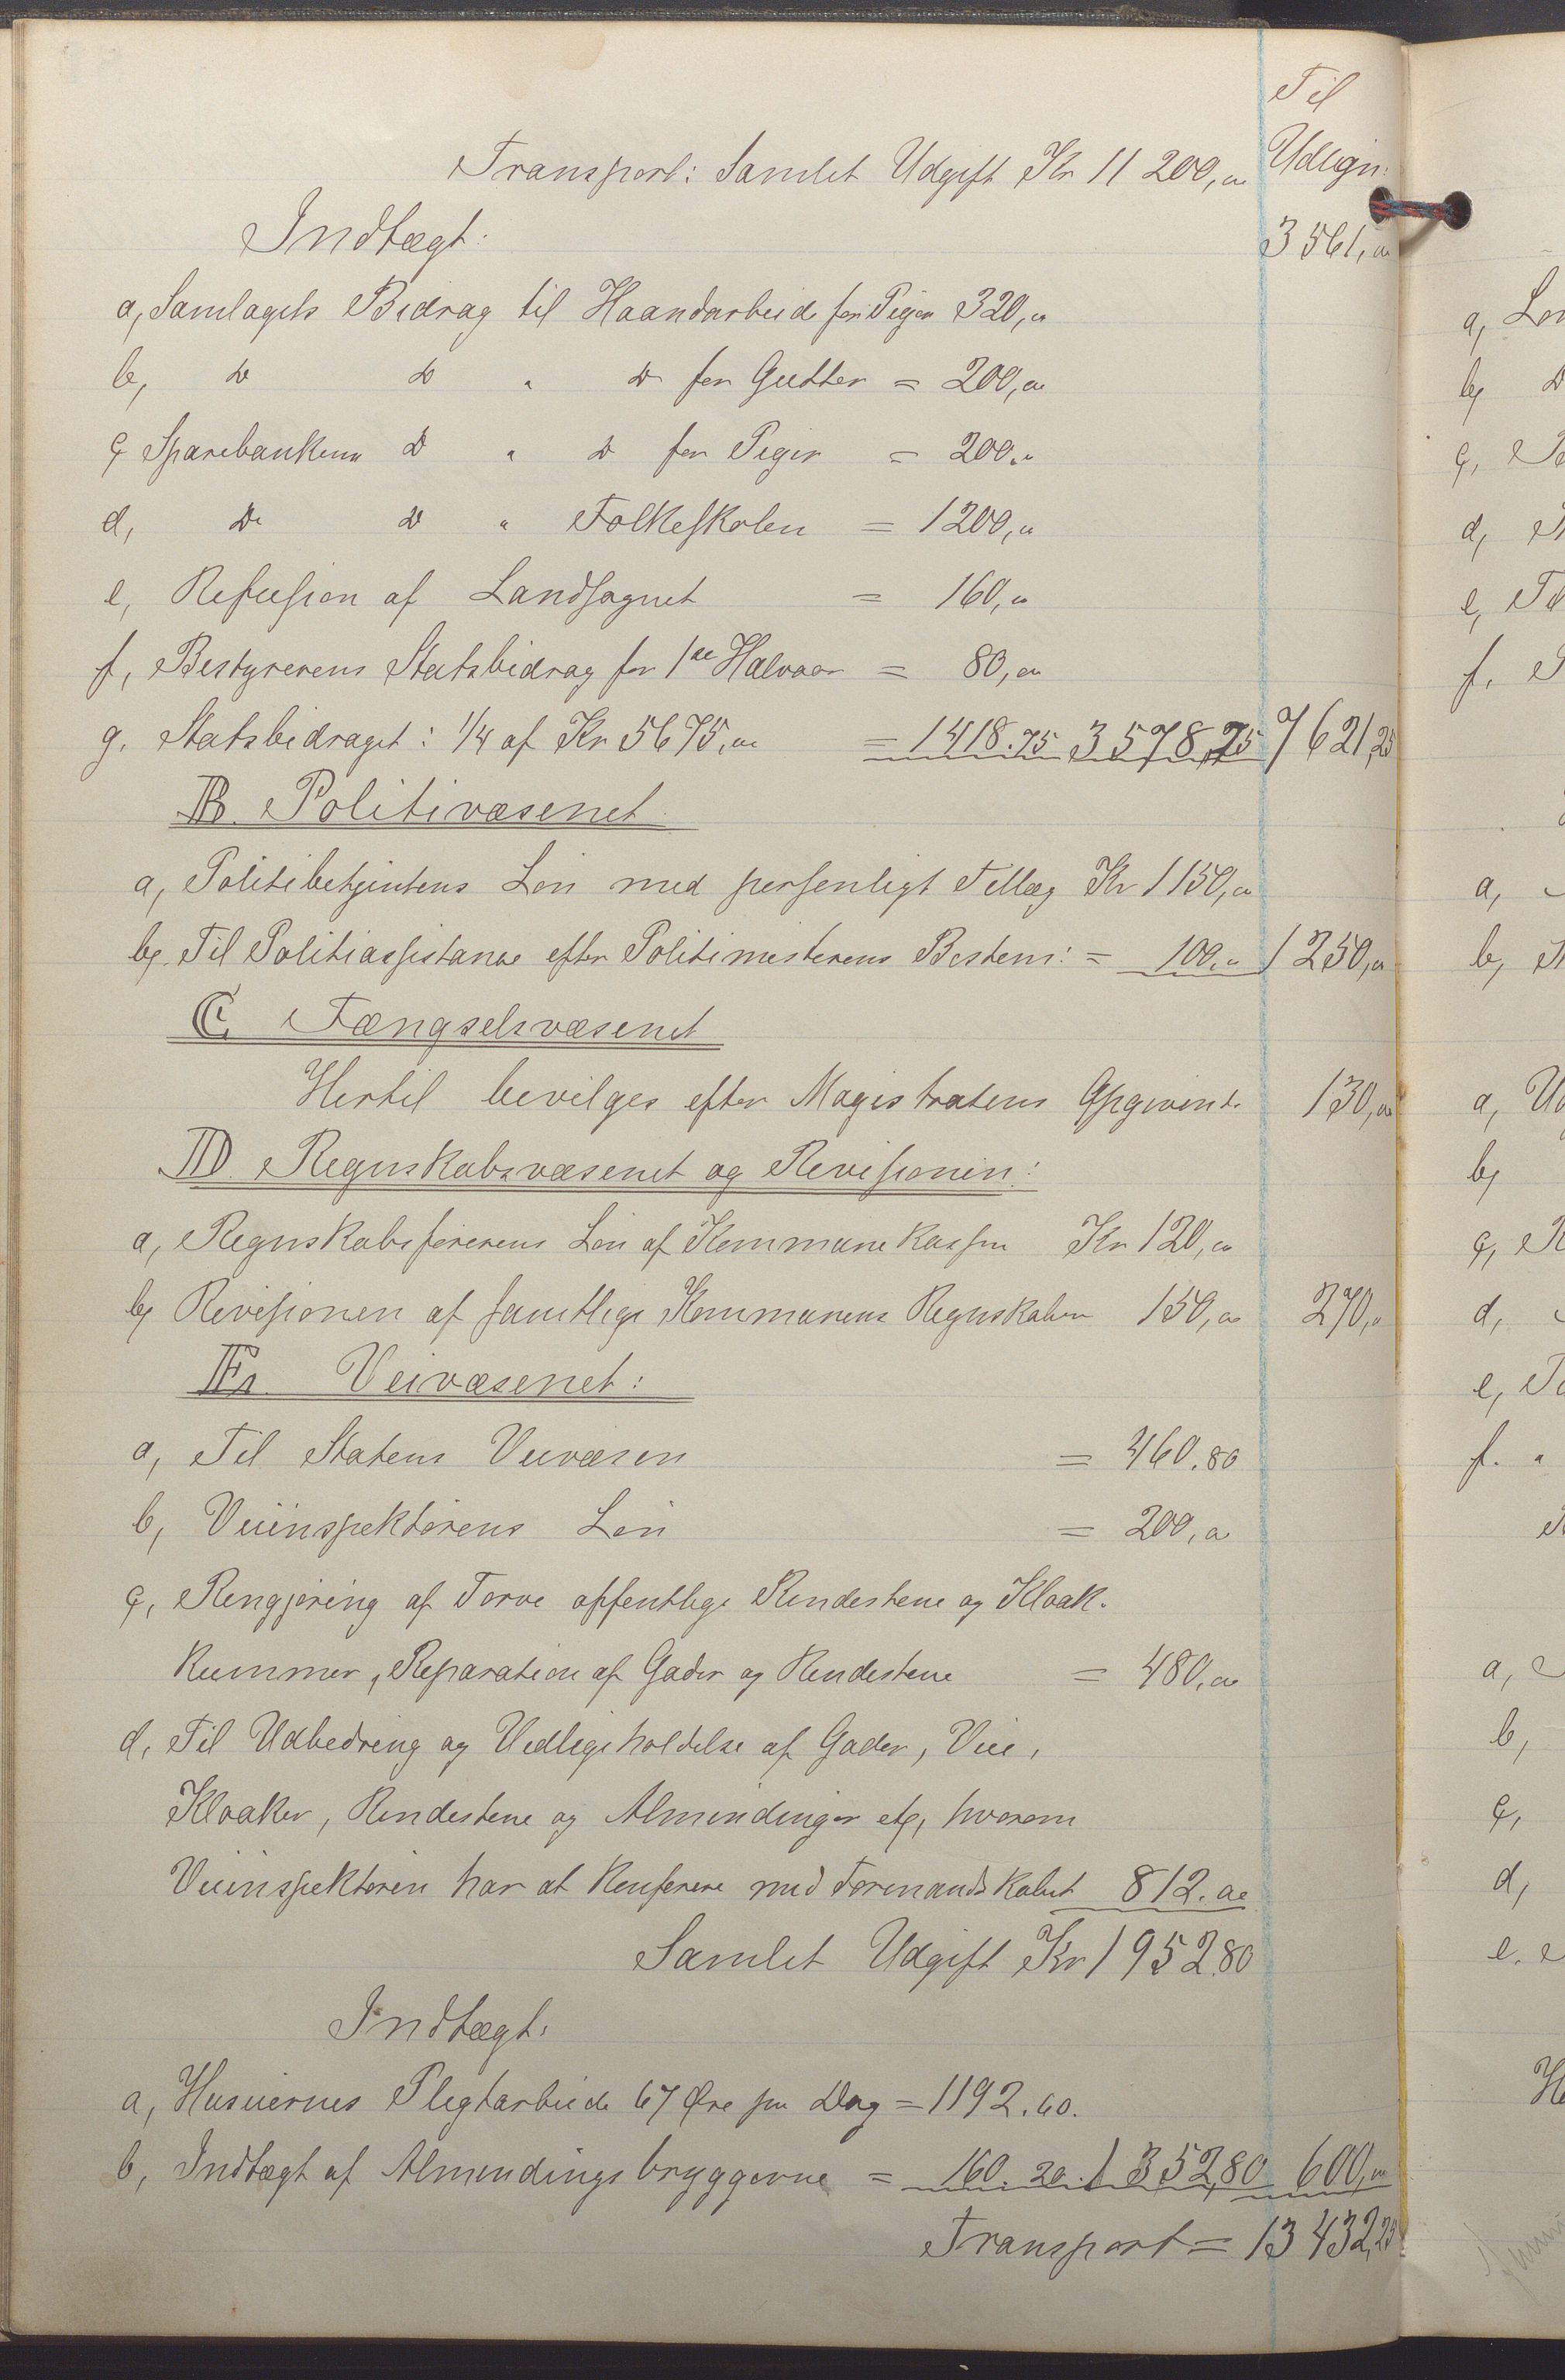 Til
Transport: Samlet Udgift Kr 11 200,00 Udlign:
Indtægt: 3 561,00
a, Samlagets Bidrag til Haandarbeide for Piger 320,00
b, Do Do " Do for Gutter = 200,00
c, Sparebankens Do " Do for Piger = 200.00
d, Do Do " Folkeskolen = 1200,00
e, Refusion af Landsognet = 160,00
f, Bestyrerens Statsbidrag for 1ste Halvaar = 80,00
g. Statsbidraget: 1/4 af Kr 5675,00 = 1418.75 3578,75 7621,25
B. Politivæsenet
a, Politibetjentens Løn med personligt Tillæg Kr 1150,00
b, Til Politiassistance efter Politimesterens Bestem: = 100,00 1250,00
C. Fængselsvæsenet
Hertil bevilges efter Magistratens Opgivende 130,00
D. Regnskabsvæsenet og Revisionen:
a, Regnskabsførerens Løn af Kommunekassen Kr 120,00
b, Revisionen af samtlige Kommunens Regnskaber 150,00 270,00
E. Veivæsenet:
a, Til Statens Veivæsen = 460.80
b, Veiinspektørens Løn = 200,00
c, Rengjøring af Torve offentlige Rendestene og Kloak-
kummer, Reparation af Gader og Rendestene = 480,00
d, Til Udbedring og Vedligeholdelse af Gader, Veie,
Kloaker, Rendestene og Almindinger etc, hvorom
Veiinspektøren har at konferere med Formandskabet 812.00
Samlet Udgift Kr 1952.80
Indtægt:
a, Huseiernes Pligtarbeide 67 Øre pr Dag = 1192.60.
b, Indtægt af Almindingsbryggerne = 160.20. 1352,80 600,00
Transport = 13 432,25